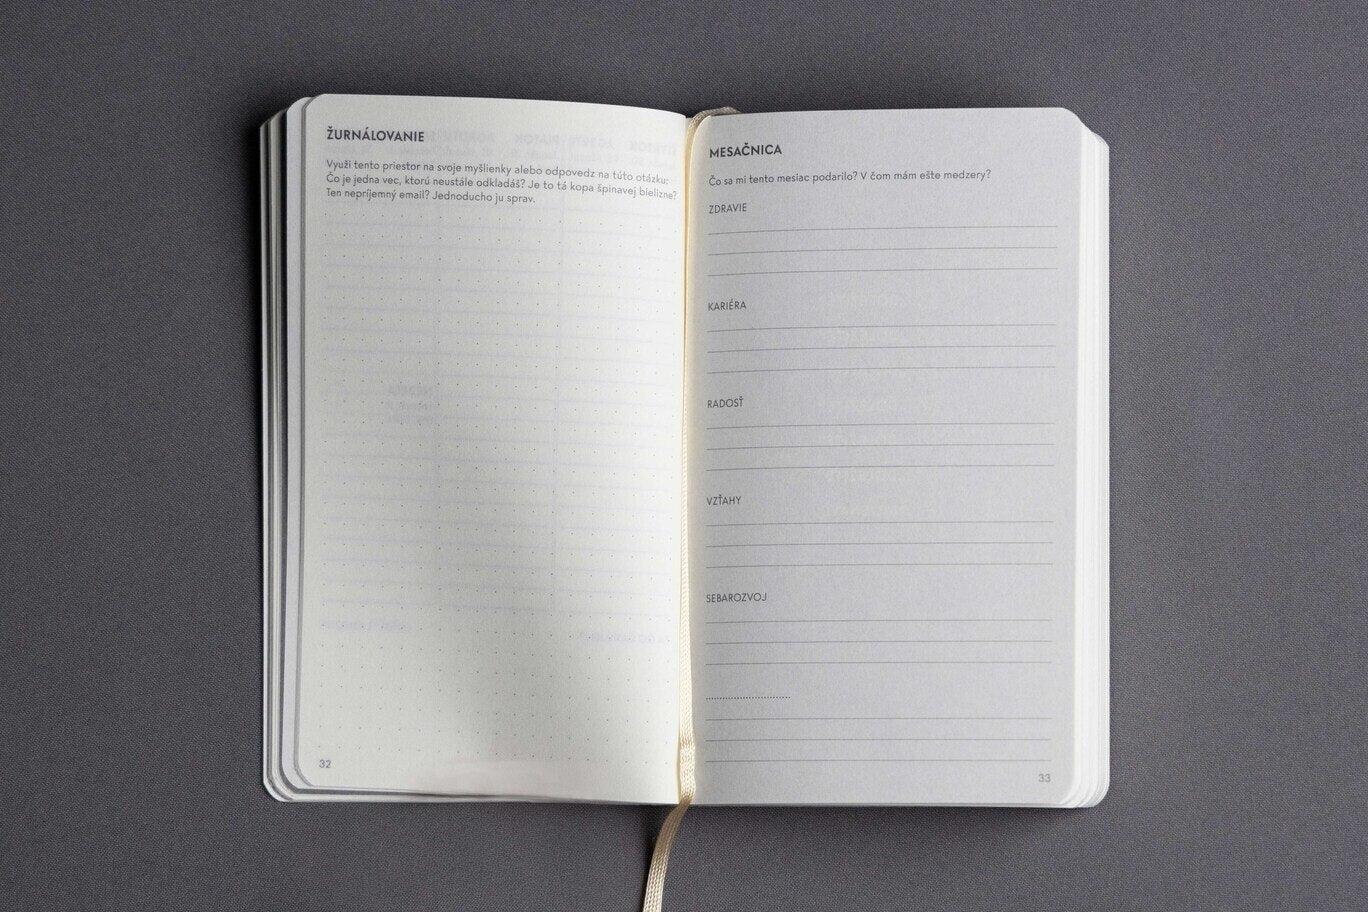 ŽURNÁLOVANIE
Využi tento priestor na svoje myšlienky alebo odpovedz na túto otázku:
Čo je jedna vec, ktorú neustále odkladáš? Je to tá kopa špinavej bielizne?
Ten nepríjemný email? Jednoducho ju sprav.
32
MESAČNICA
Čo sa mi tento mesiac podarilo? V čom mám ešte medzery?
ZDRAVIE
KARIÉRA
RADOSŤ
VZŤAHY
SEBAROZVOJ
33